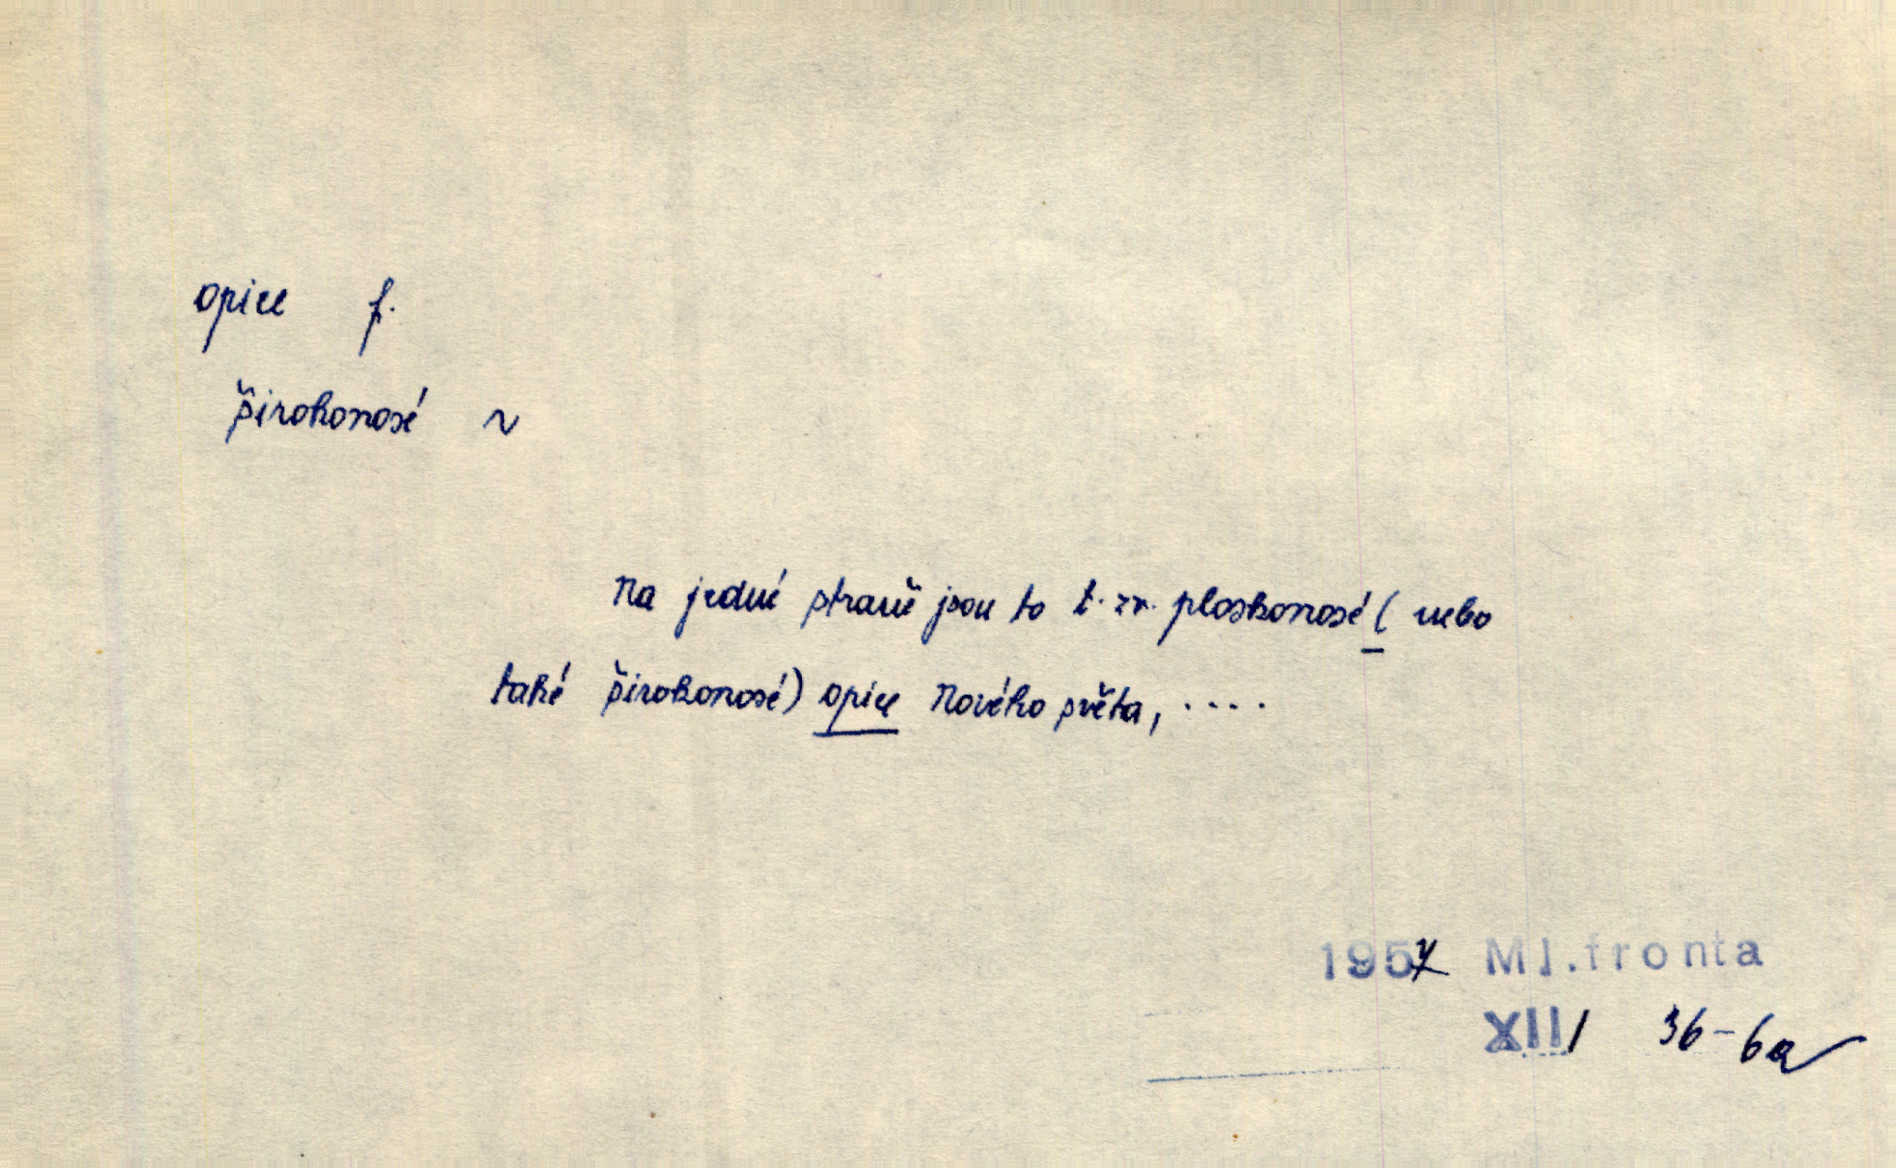 opice f.
širokonosé ~
Na jedné straně jsou to t. zv. ploskonosé ( nebo
také širokonosé) opice Nového světa, ....
1957 Ml.fronta
XIII 36-6a